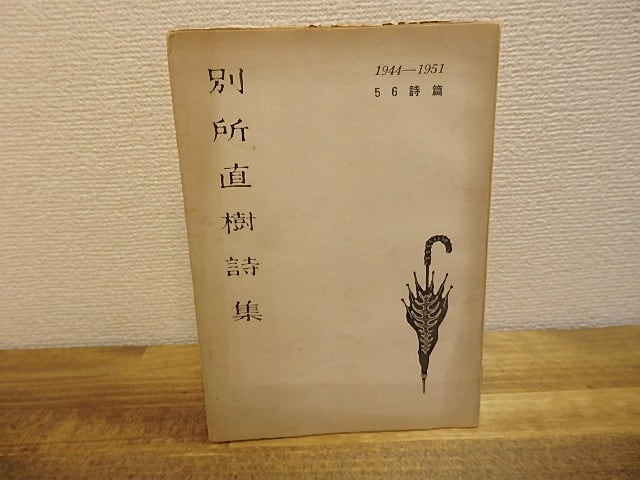 別所直樹詩集
1944—1951
56詩篇